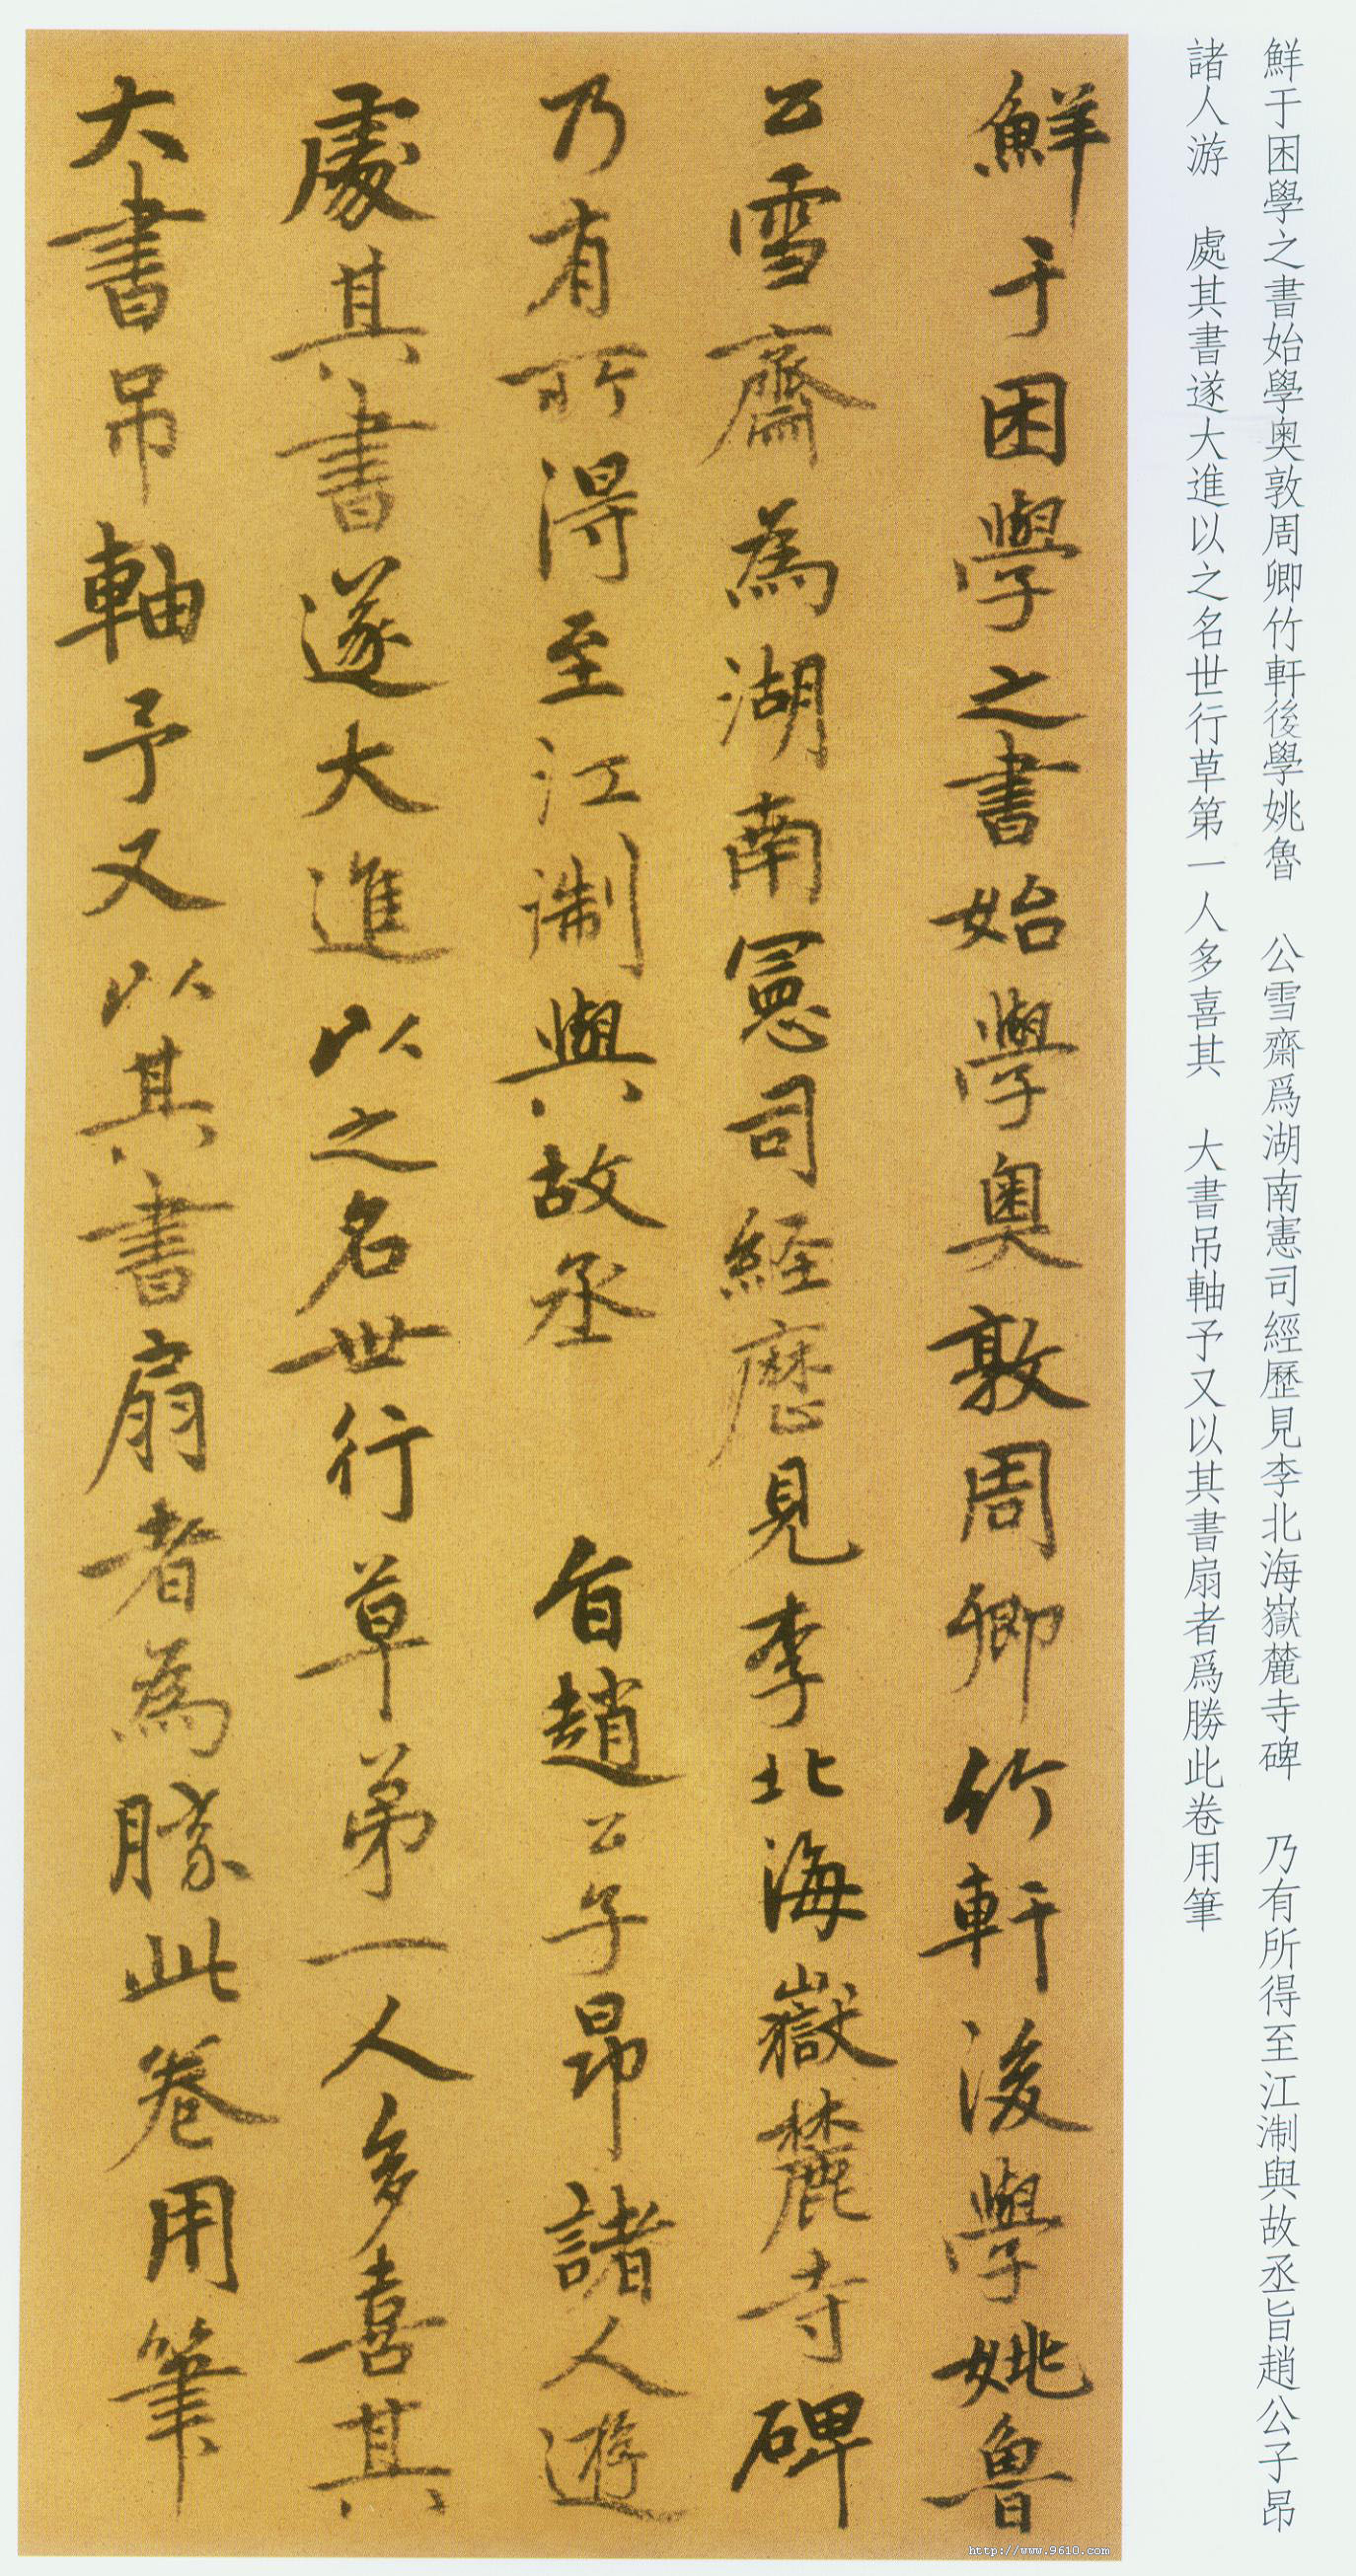 鮮于困學之書始學奥敦周卿竹軒後學姚魯　公雪齋爲湖南憲司經歷見李北海嶽麓寺碑　乃有所得至江淛與故丞旨趙公子昂
諸人游　處其書遂大進以之名世行草第一人多喜其　大書吊軸予又以其書扇者爲勝此卷用筆
鮮于困學之書始學奥敦周卿竹軒後學姚魯
公雪齋為湖南憲司経歴見李北海嶽麓寺碑
乃有所得至江淛與故丞　旨趙公子昂諸人遊
處其書遂大進以之名世行草弟一人多喜其
大書吊軸予又以其書扇者為勝此卷用筆
http://www.9610.com